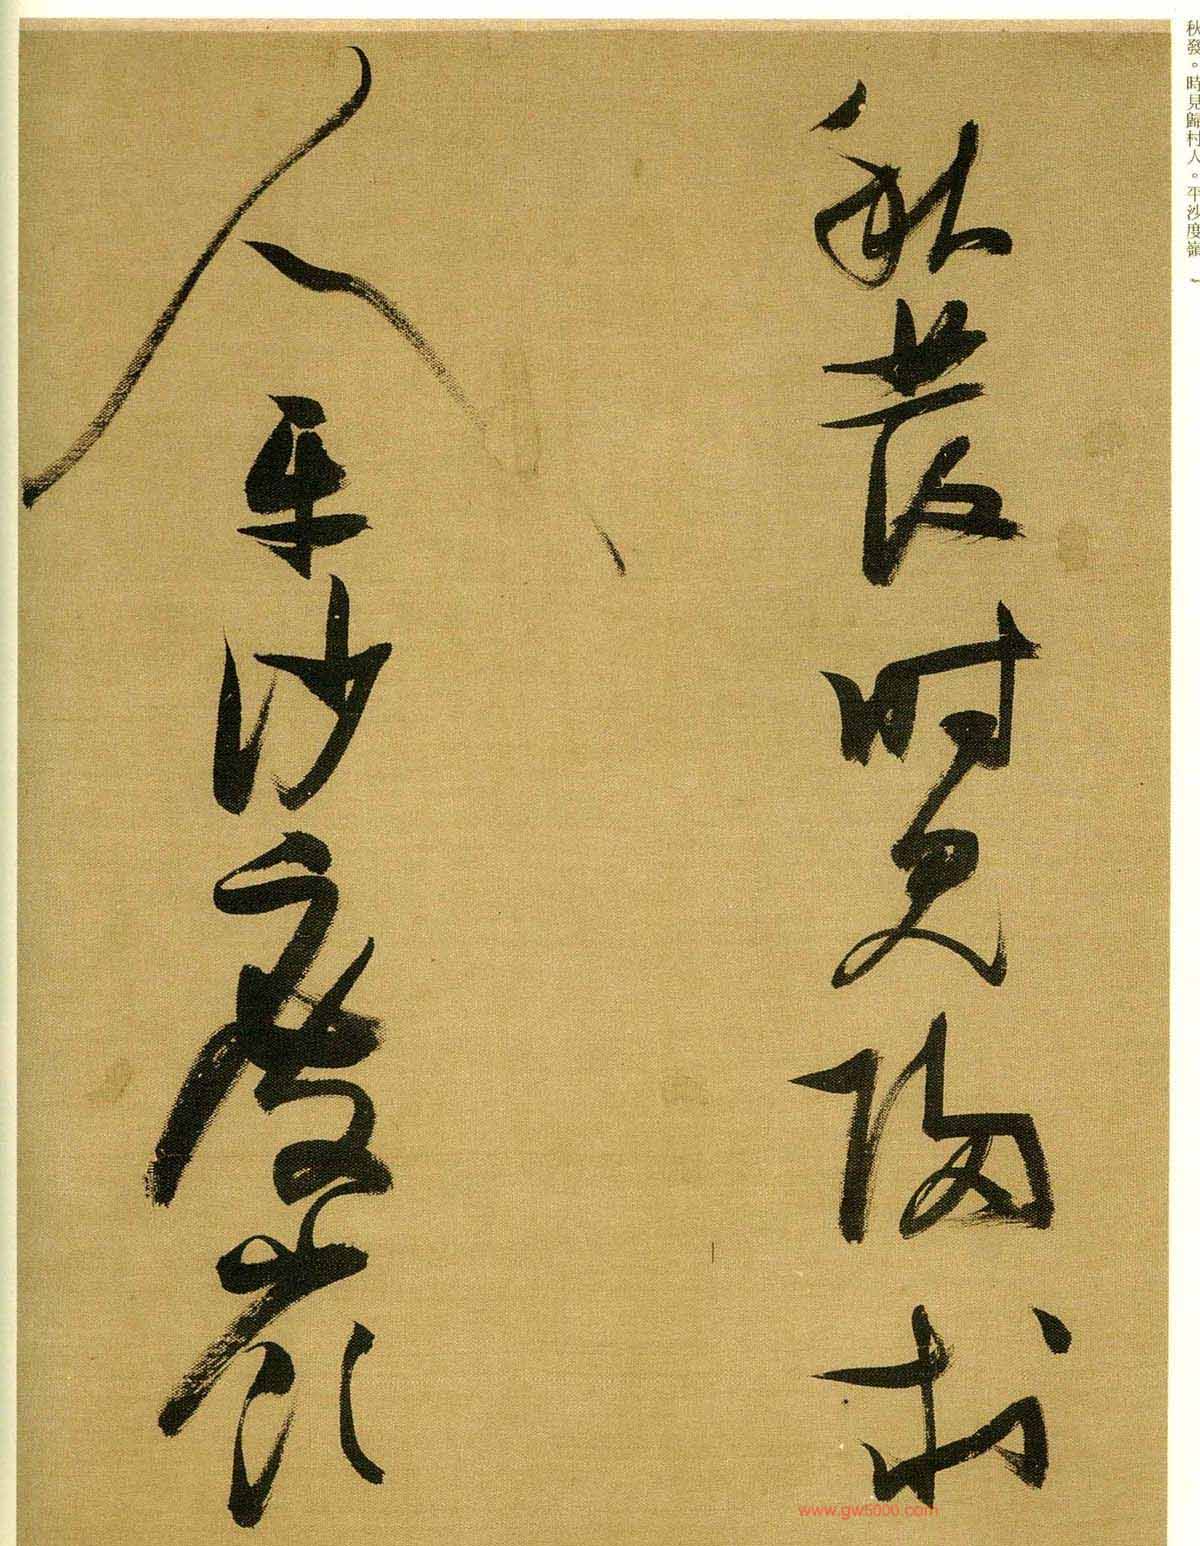 秋發。時見歸村人。平沙度嶺
秋發時見歸村
人平沙度嶺
www.gw5000.com